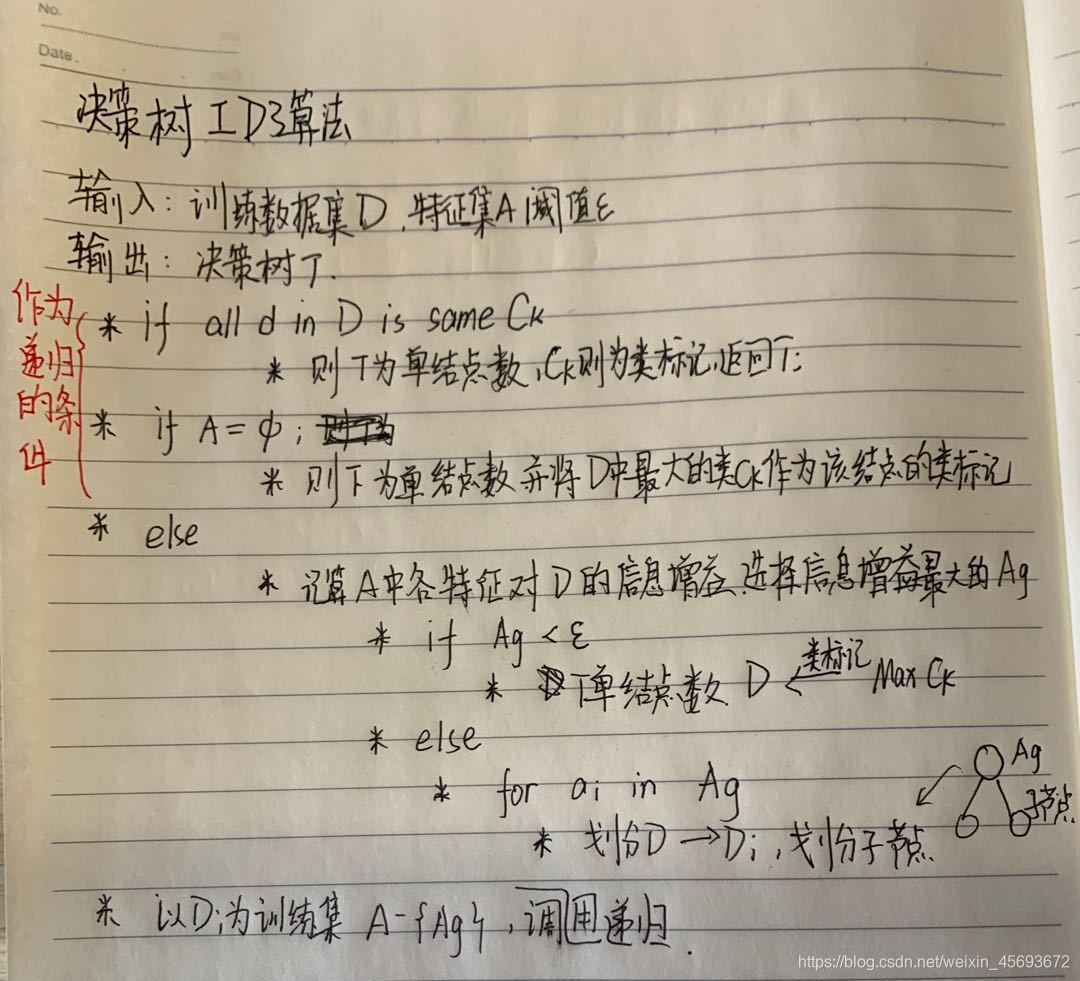 No.
Date.
决策树 ID3算法
输入: 训练数据集D,特征集A 阈值ε
输出: 决策树T.
作为递归的条件
* if all d in D is same Ck
* 则T为单结点数,Ck则为类标记,返回T;
* if A=φ;
* 则T为单结点数 并将D中最大的类Ck作为该结点的类标记
* else
* 计算A中各特征对D的信息增益.选择信息增益最大的Ag
* if Ag<ε
* T单结点数. D ← 类标记 Max Ck
* else
* for ai in Ag
* 划分D→Di,划分子节点
Ag
子节点
* 以Di为训练集 A-{Ag},调用递归.
https://blog.csdn.net/weixin_45693672